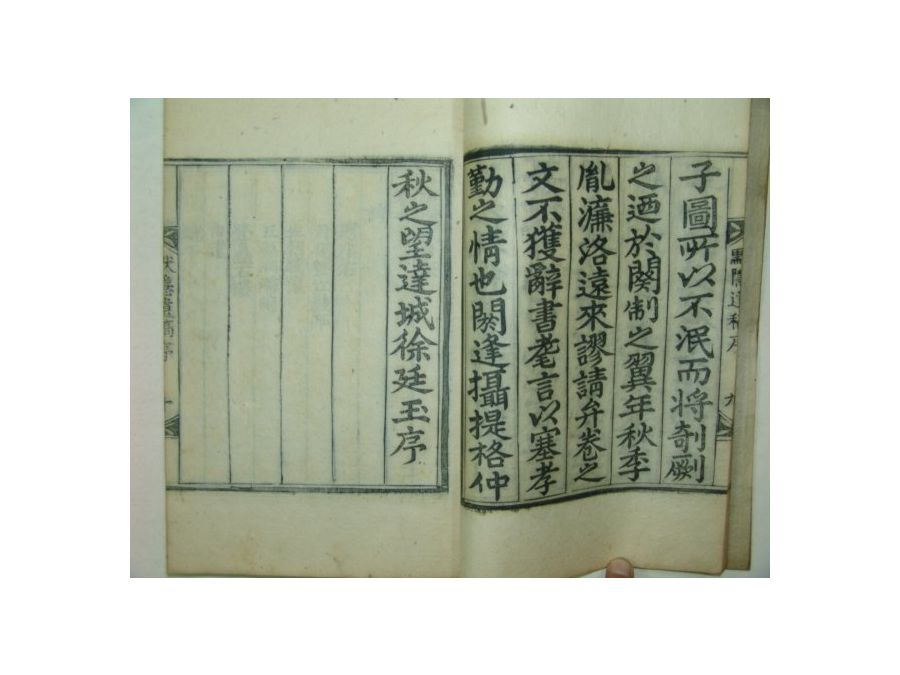 子圖所以不泯而将剞劂
之迺於闋制之翼年秋季
胤濂洛遠來謬請弁卷之
文不獲辭書耄言以塞孝
勤之情也閼逢攝提格仲
秋之望達城徐廷玉序